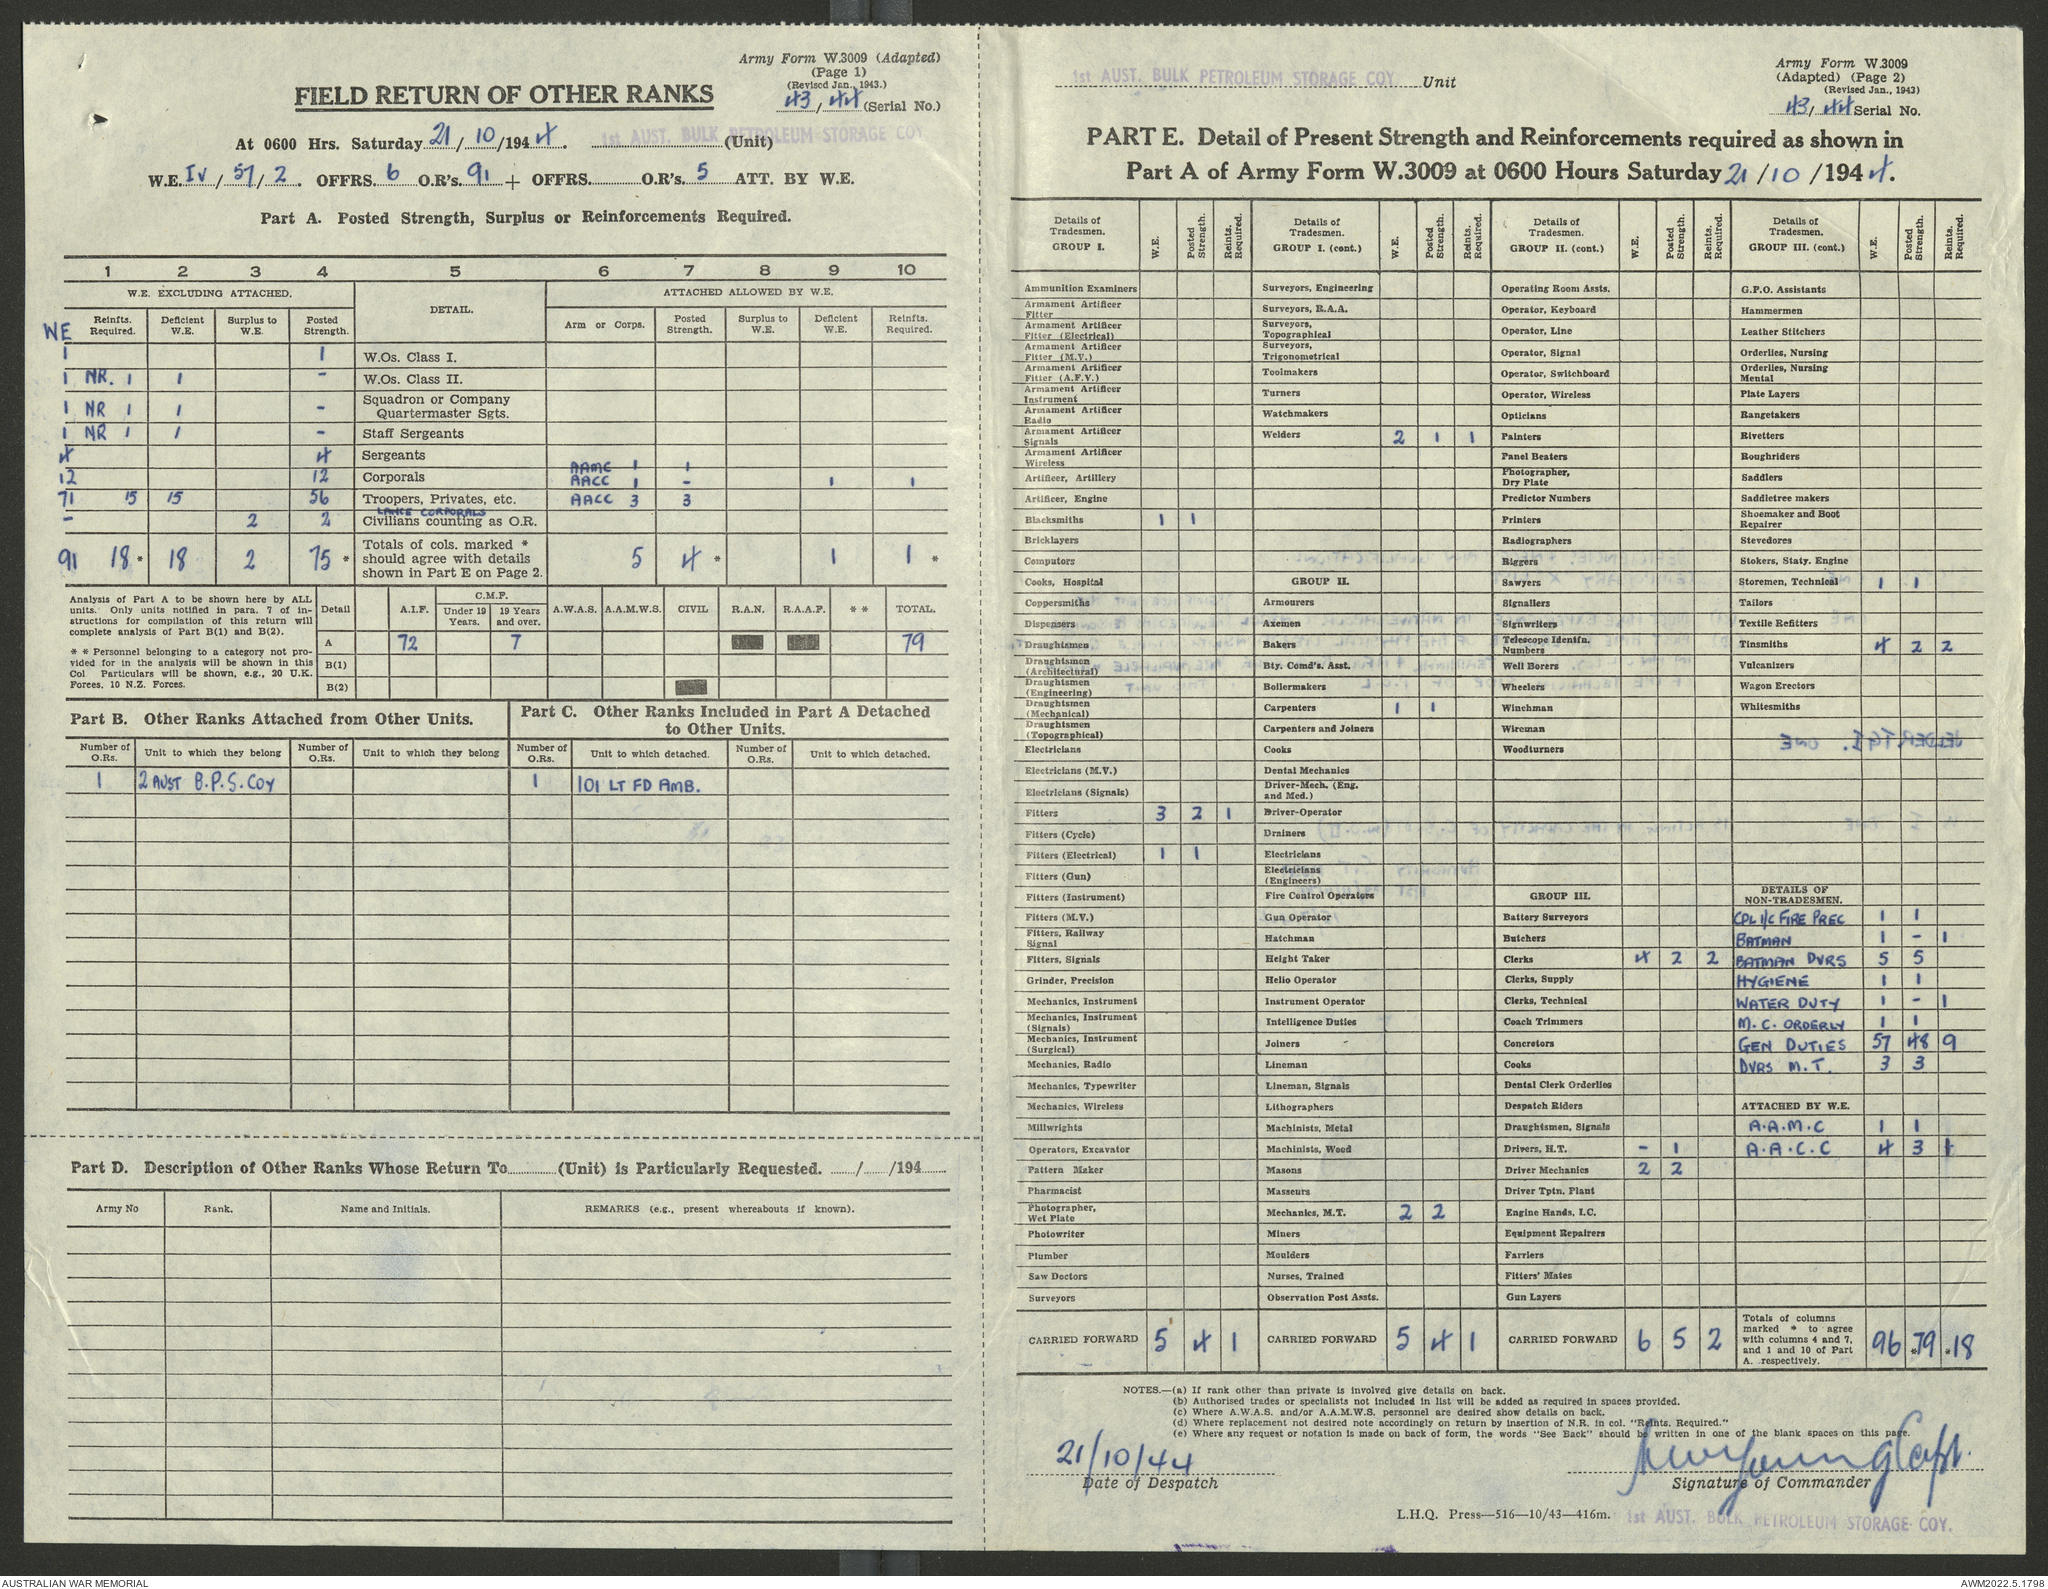 Army Form W.3009 (Adapted)
(Page 1)
(Revised Jan., 1943.)
43/44 (Serial No.)
FIELD RETURN OF OTHER RANKS
At 0600 Hrs. Saturday 21/10/1944. 1st AUST. BULK PETROLEUM STORAGE COY. (Unit)
W.E. IV/57/2. OFFRS. 6 O.R's. 91 + OFFRS. O.R's. 5 ATT. BY W.E.
Part A. Posted Strength, Surplus or Reinforcements Required.
1 2 3 4 5 6 7 8 9 10
W.E. EXCLUDING ATTACHED. DETAIL. ATTACHED ALLOWED BY W.E.
WE Reinfts. Required. Deficient W.E. Surplus to W.E. Posted Strength. Arm or Corps. Posted Strength. Surplus to W.E. Deficient W.E. Reinfts. Required.
1 1 W.Os. Class I.
1 NR. 1 1 - W.Os. Class II.
1 NR 1 1 - Squadron or Company Quartermaster Sgts.
1 NR 1 1 - Staff Sergeants
4 4 Sergeants
AAMC 1 1
12 12 Corporals AACC 1 - 1 1
71 15 15 56 Troopers, Privates, etc. AACC 3 3
LANCE CORPORALS
- 2 2 Civilians counting as O.R.
91 18 * 18 2 75 * Totals of cols. marked * should agree with details shown in Part E on Page 2. 5 4 * 1 1 *
Analysis of Part A to be shown here by ALL units. Only units notified in para. 7 of instructions for compilation of this return will complete analysis of Part B(1) and B(2).
* * Personnel belonging to a category not provided for in the analysis will be shown in this Col Particulars will be shown, e.g., 20 U.K. Forces, 10 N.Z. Forces.
Detail A.I.F. C.M.F. Under 19 Years. 19 Years and over. A.W.A.S. A.A.M.W.S. CIVIL R.A.N. R.A.A.F. * * TOTAL.
A 72 7 79
B(1)
B(2)
Part B. Other Ranks Attached from Other Units.
Part C. Other Ranks Included in Part A Detached to Other Units.
Number of O.Rs. Unit to which they belong Number of O.Rs. Unit to which they belong Number of O.Rs. Unit to which detached. Number of O.Rs. Unit to which detached.
1 2 AUST B.P.S. COY 1 101 LT FD AMB.
Part D. Description of Other Ranks Whose Return To (Unit) is Particularly Requested. / /194
Army No Rank. Name and Initials. REMARKS (e.g., present whereabouts if known).
1st AUST. BULK PETROLEUM STORAGE COY. Unit
Army Form W.3009
(Adapted) (Page 2)
(Revised Jan., 1943)
43/44 Serial No.
PART E. Detail of Present Strength and Reinforcements required as shown in
Part A of Army Form W.3009 at 0600 Hours Saturday 21/10/1944.
Details of Tradesmen. GROUP I. W.E. Posted Strength. Reints. Required.
Ammunition Examiners
Armament Artificer Fitter
Armament Artificer Fitter (Electrical)
Armament Artificer Fitter (M.V.)
Armament Artificer Fitter (A.F.V.)
Armament Artificer Instrument
Armament Artificer Radio
Armament Artificer Signals
Armament Artificer Wireless
Artificer, Artillery
Artificer, Engine
Blacksmiths 1 1
Bricklayers
Computors
Cooks, Hospital
Coppersmiths
Dispensers
Draughtsmen
Draughtsmen (Architectural)
Draughtsmen (Engineering)
Draughtsmen (Mechanical)
Draughtsmen (Topographical)
Electricians
Electricians (M.V.)
Electricians (Signals)
Fitters 3 2 1
Fitters (Cycle)
Fitters (Electrical) 1 1
Fitters (Gun)
Fitters (Instrument)
Fitters (M.V.)
Fitters, Railway Signal
Fitters, Signals
Grinder, Precision
Mechanics, Instrument
Mechanics, Instrument (Signals)
Mechanics, Instrument (Surgical)
Mechanics, Radio
Mechanics, Typewriter
Mechanics, Wireless
Millwrights
Operators, Excavator
Pattern Maker
Pharmacist
Photographer, Wet Plate
Photowriter
Plumber
Saw Doctors
Surveyors
CARRIED FORWARD 5 4 1
Details of Tradesmen. GROUP I. (cont.) W.E. Posted Strength. Reints. Required.
Surveyors, Engineering
Surveyors, R.A.A.
Surveyors, Topographical
Surveyors, Trigonometrical
Toolmakers
Turners
Watchmakers
Welders 2 1 1
GROUP II.
Armourers
Axemen
Bakers
Bty. Comd's. Asst.
Boilermakers
Carpenters 1 1
Carpenters and Joiners
Cooks
Dental Mechanics
Driver-Mech. (Eng. and Med.)
Driver-Operator
Drainers
Electricians
Electricians (Engineers)
Fire Control Operators
Gun Operator
Hatchman
Height Taker
Helio Operator
Instrument Operator
Intelligence Duties
Joiners
Lineman
Lineman, Signals
Lithographers
Machinists, Metal
Machinists, Wood
Masons
Masseurs
Mechanics, M.T. 2 2
Miners
Moulders
Nurses, Trained
Observation Post Assts.
CARRIED FORWARD 5 4 1
Details of Tradesmen. GROUP II. (cont.) W.E. Posted Strength. Reints. Required.
Operating Room Assts.
Operator, Keyboard
Operator, Line
Operator, Signal
Operator, Switchboard
Operator, Wireless
Opticians
Painters
Panel Beaters
Photographer, Dry Plate
Predictor Numbers
Printers
Radiographers
Riggers
Sawyers
Signallers
Signwriters
Telescope Identfn. Numbers
Well Borers
Wheelers
Winchman
Wireman
Woodturners
GROUP III.
Battery Surveyors
Butchers
Clerks 4 2 2
Clerks, Supply
Clerks, Technical
Coach Trimmers
Concretors
Cooks
Dental Clerk Orderlies
Despatch Riders
Draughtsmen, Signals
Drivers, H.T. - 1
Driver Mechanics 2 2
Driver Tptn. Plant
Engine Hands, I.C.
Equipment Repairers
Farriers
Fitters' Mates
Gun Layers
CARRIED FORWARD 6 5 2
Details of Tradesmen. GROUP III. (cont.) W.E. Posted Strength. Reints Required.
G.P.O. Assistants
Hammermen
Leather Stitchers
Orderlies, Nursing
Orderlies, Nursing Mental
Plate Layers
Rangetakers
Rivetters
Roughriders
Saddlers
Saddletree makers
Shoemaker and Boot Repairer
Stevedores
Stokers, Staty. Engine
Storemen, Technical 1 1
Tailors
Textile Refitters
Tinsmiths 4 2 2
Vulcanizers
Wagon Erectors
Whitesmiths
DETAILS OF NON-TRADESMEN.
CPL I/C FIRE PREC 1 1
BATMAN 1 - 1
BATMAN DVRS 5 5
HYGIENE 1 1
WATER DUTY 1 - 1
M.C. ORDERLY 1 1
GEN DUTIES 57 48 9
DVRS M.T. 3 3
ATTACHED BY W.E.
A.A.M.C 1 1
A.A.C.C 4 3 1
Totals of columns marked * to agree with columns 4 and 7, and 1 and 10 of Part A. respectively. 96 *79 *18
NOTES.—(a) If rank other than private is involved give details on back.
(b) Authorised trades or specialists not included in list will be added as required in spaces provided.
(c) Where A.W.A.S. and/or A.A.M.W.S. personnel are desired show details on back.
(d) Where replacement not desired note accordingly on return by insertion of N.R. in col. "Reints. Required."
(e) Where any request or notation is made on back of form, the words "See Back" should be written in one of the blank spaces on this page.
21/10/44
Date of Despatch
Young Capt.
Signature of Commander
L.H.Q. Press—516—10/43—416m.
1st AUST. BULK PETROLEUM STORAGE COY.
AUSTRALIAN WAR MEMORIAL
AWM2022.5.1798